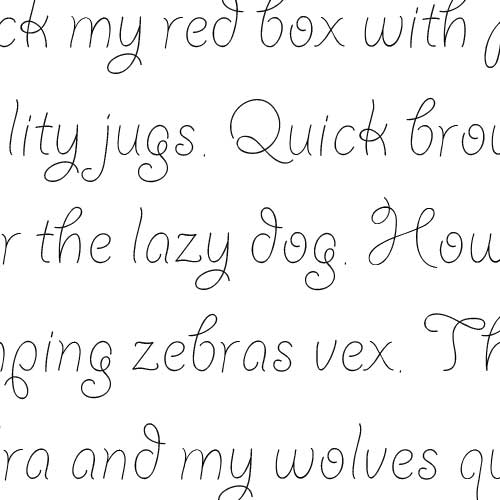 ck my red box with
lity jugs. Quick brow
r the lazy dog. How
mping zebras vex. Th
ra and my wolves qu